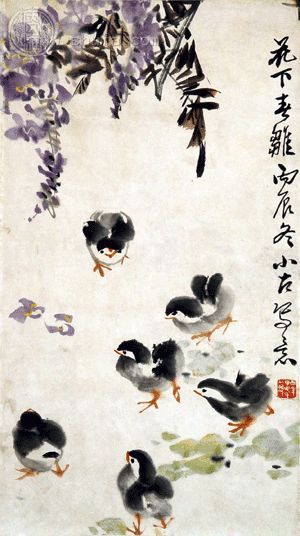 花下春雛丙辰冬小古写意